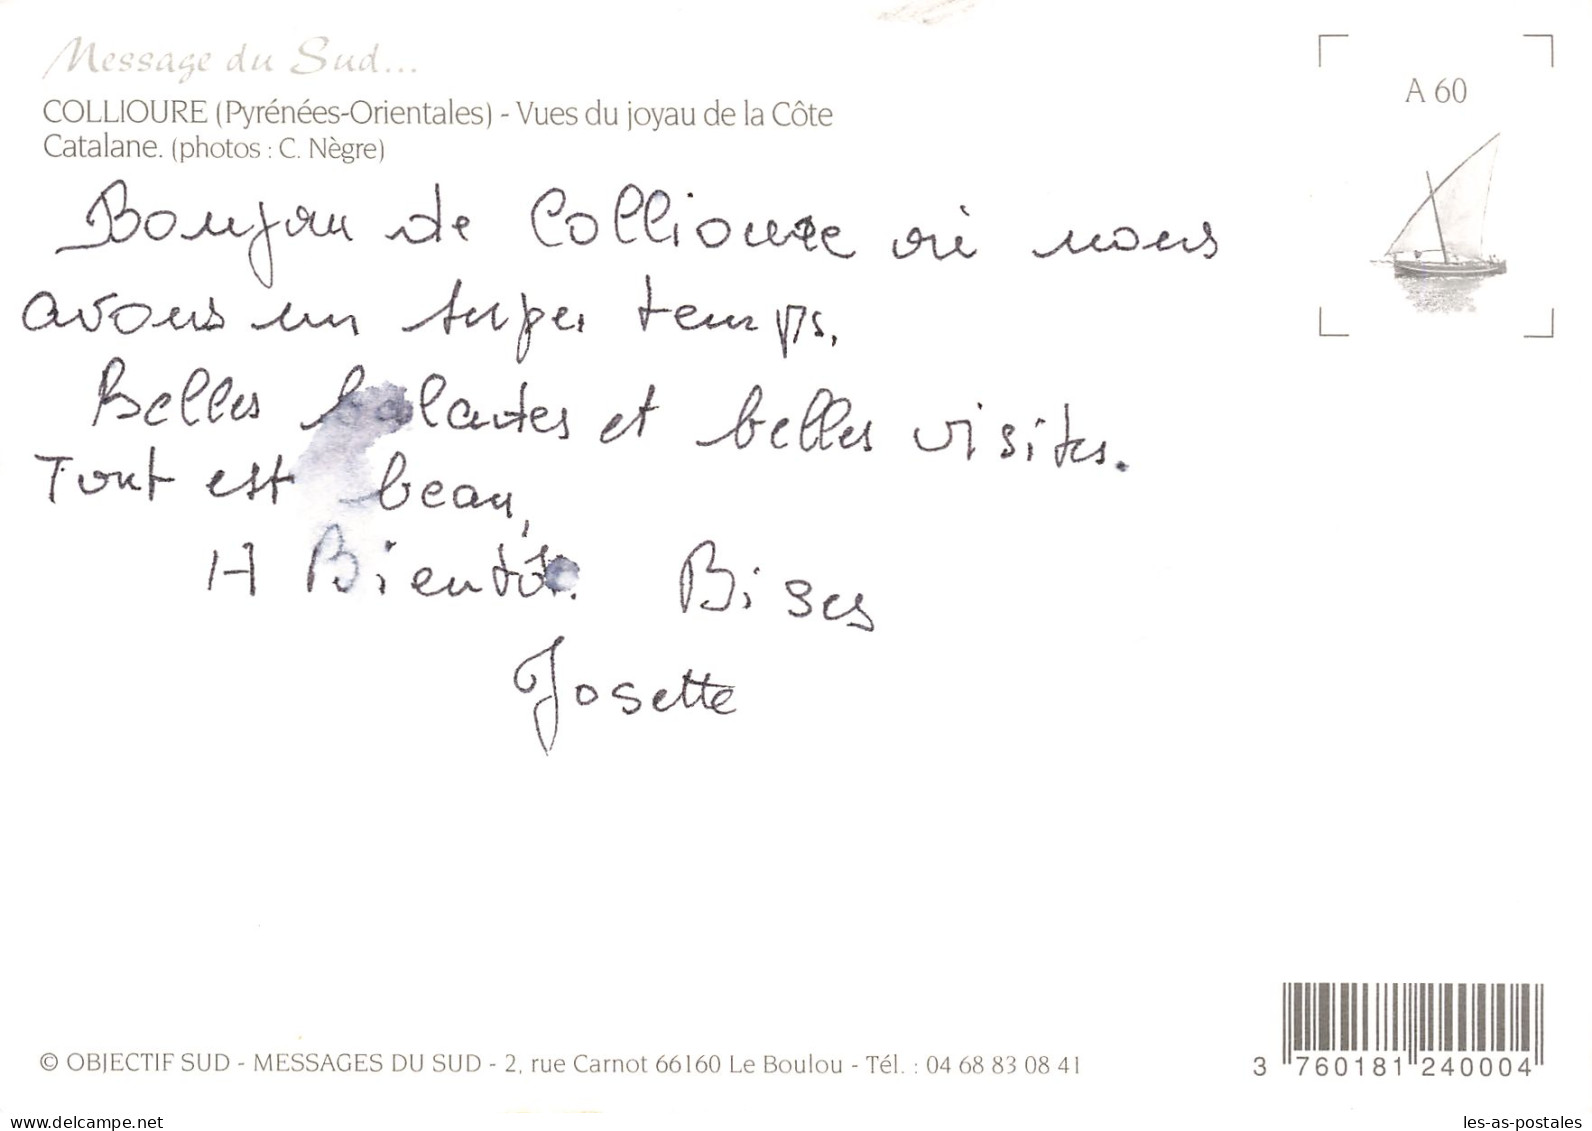 Message du Sud...
COLLIOURE (Pyrénées-Orientales) - Vues du joyau de la Côte
Catalane. (photos : C. Nègre)
A 60
Bonjour de Collioure où nous
avons un super temps.
Belles balades et belles visites.
Tout est beau,
A Bientôt. Bises
Josette
© OBJECTIF SUD - MESSAGES DU SUD - 2, rue Carnot 66160 Le Boulou - Tél. : 04 68 83 08 41
3 760181 240004
www.delcampe.net
les-as-postales